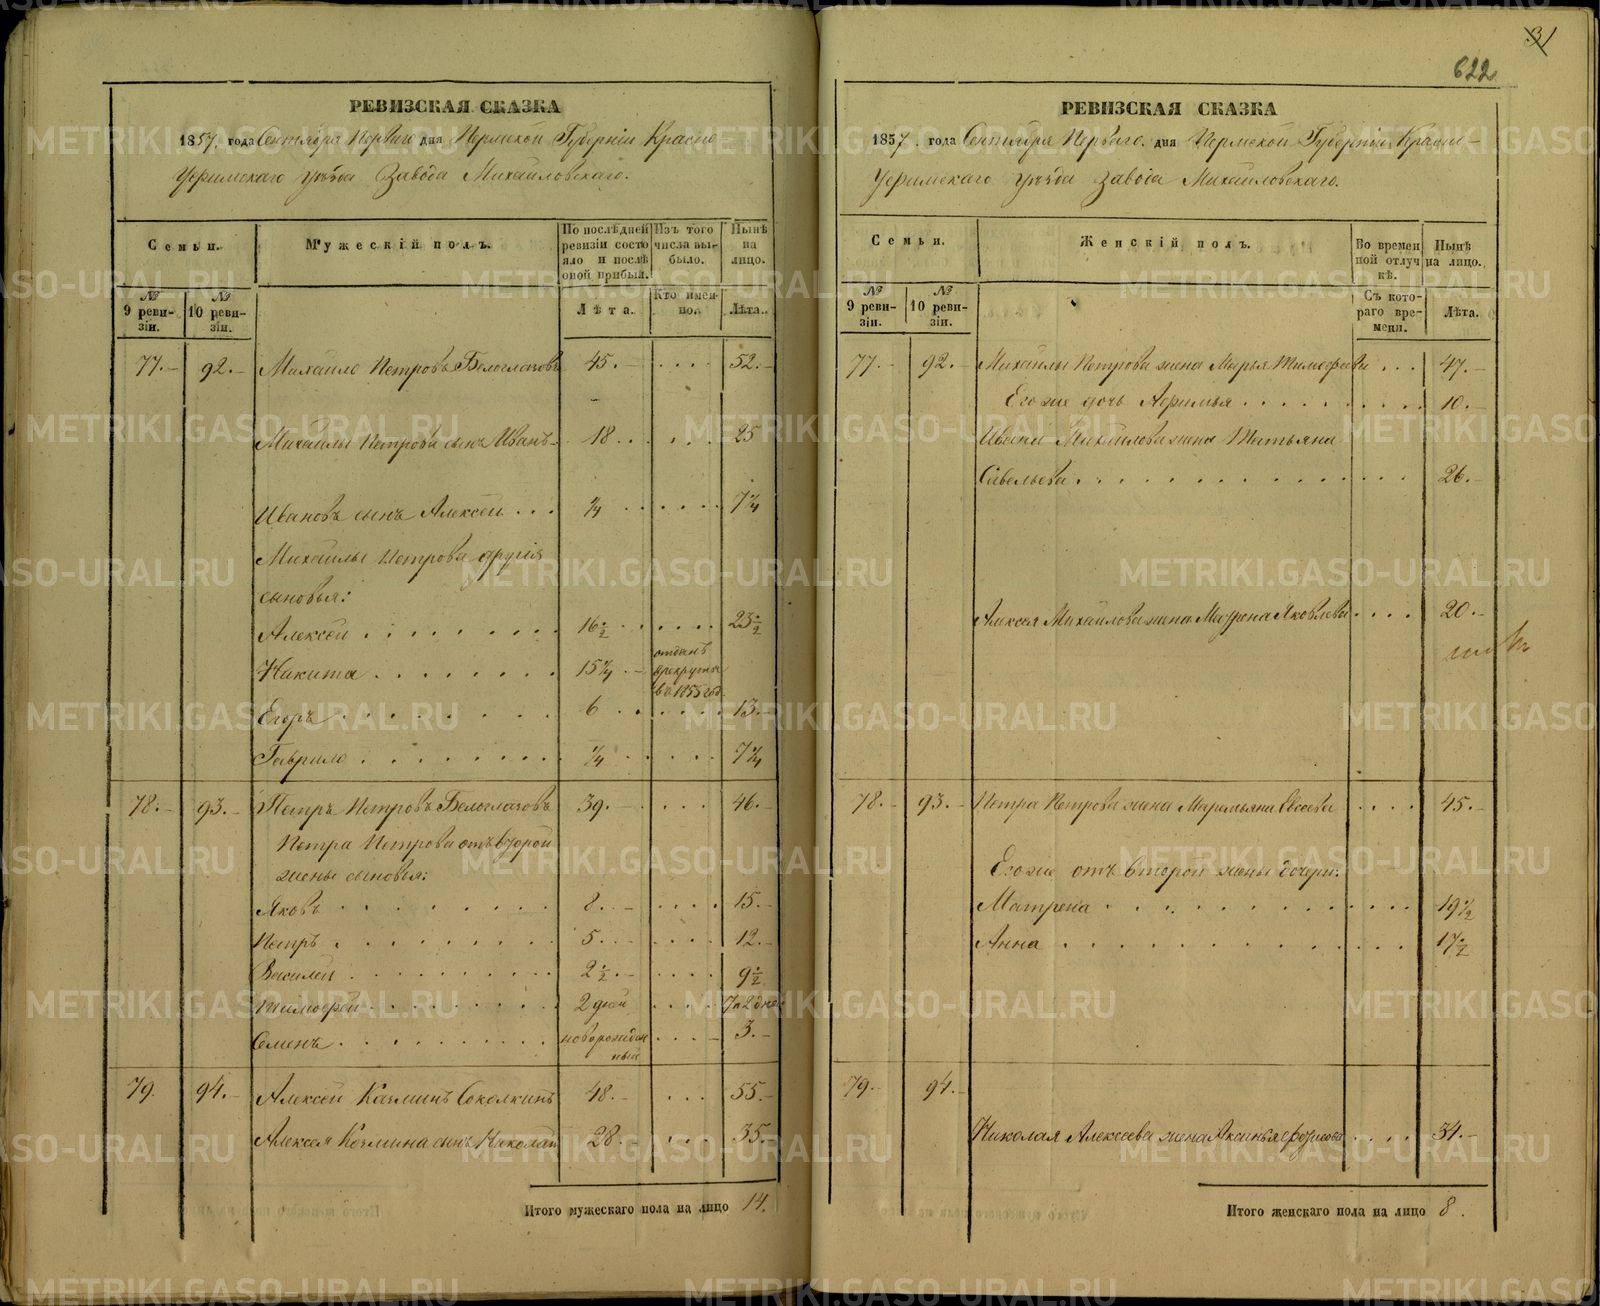 РЕВИЗСКАЯ СКАЗКА
1857. года Сентября Первого дня Пермской Губерніи Красно
Уфимскаго уѣзда Завода Михайловскаго.
Семьи.
Мужескій полъ.
По послѣдней ревизіи состояло и послѣ оной прибыл.
Изъ того числа выбыло.
Нынѣ на лицо.
№ 9 ревизіи.
№ 10 ревизіи.
Лѣта.
Кто именно.
Лѣта.
77. 92. Михайло Петровъ Белоглазовъ 45. 52.
Михайлы Петрова сынъ Иванъ 18. 25
Ивановъ сынъ Алексей ¼ 7¼
Михайлы Петрова другія
сыновья:
Алексей 16½ 23½
Никита 15¼ отданъ в рекруты в 1855 год.
Егоръ 6 13.
Гаврило ¼ 7¼
78. 93. Петръ Петровъ Белоглазовъ 39. 46.
Петра Петрова отъ второй
жены сыновья:
Яковъ 8. 15.
Петръ 5. 12.
Василей 2½. 9½
Тимофей 2 дней 7 и 2 дне
Семенъ новорожденный 3.
79. 94. Алексей Козминъ Соколкинъ 48. 55.
Алексея Козмина сынъ Николай 28. 35.
Итого мужескаго пола на лицо 14.
31
622
РЕВИЗСКАЯ СКАЗКА
1857. года Сентября Перваго. дня Пермской Губерніи Красно-
Уфимскаго уѣзда Завода Михайловскаго.
Семьи.
Женскій полъ.
Во временной отлучкѣ.
Нынѣ на лицо.
№ 9 ревизіи.
№ 10 ревизіи.
Съ котораго времени.
Лѣта.
77. 92. Михайлы Петрова жена Марья Тимофева 47.
Его же дочь Афимья 10.
Ивана Михайлова жена Татьяна
Савельева 26.
Алексея Михайлова жена Матрена Яковлева 20.
78. 93. Петра Петрова жена Маремьяна Евсеева 45.
Его же отъ второй жены дочери:
Матрена 19½
Анна 17½
79. 94.
Николая Алексеева жена Аксинья 34.
Итого женскаго пола на лицо 8.
METRIKI.GASO-URAL.RU